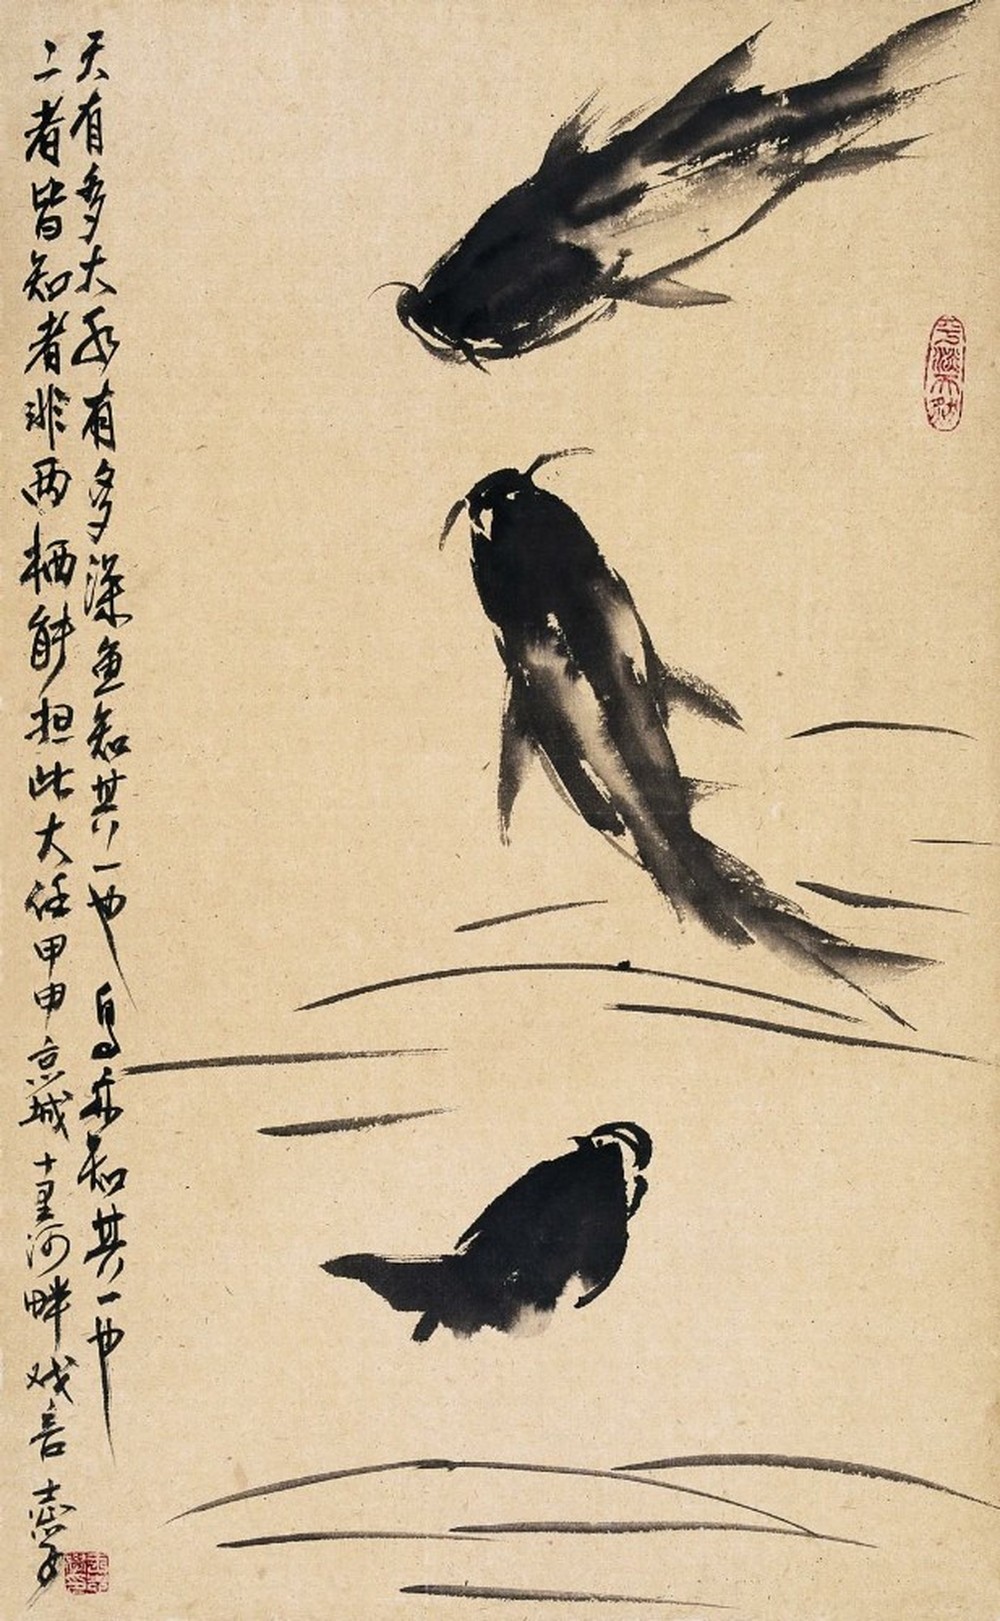 天有多大水有多深鱼知其一也鸟亦知其一也
二者皆知者非两栖能担此大任甲申京城十里河畔戏言志学